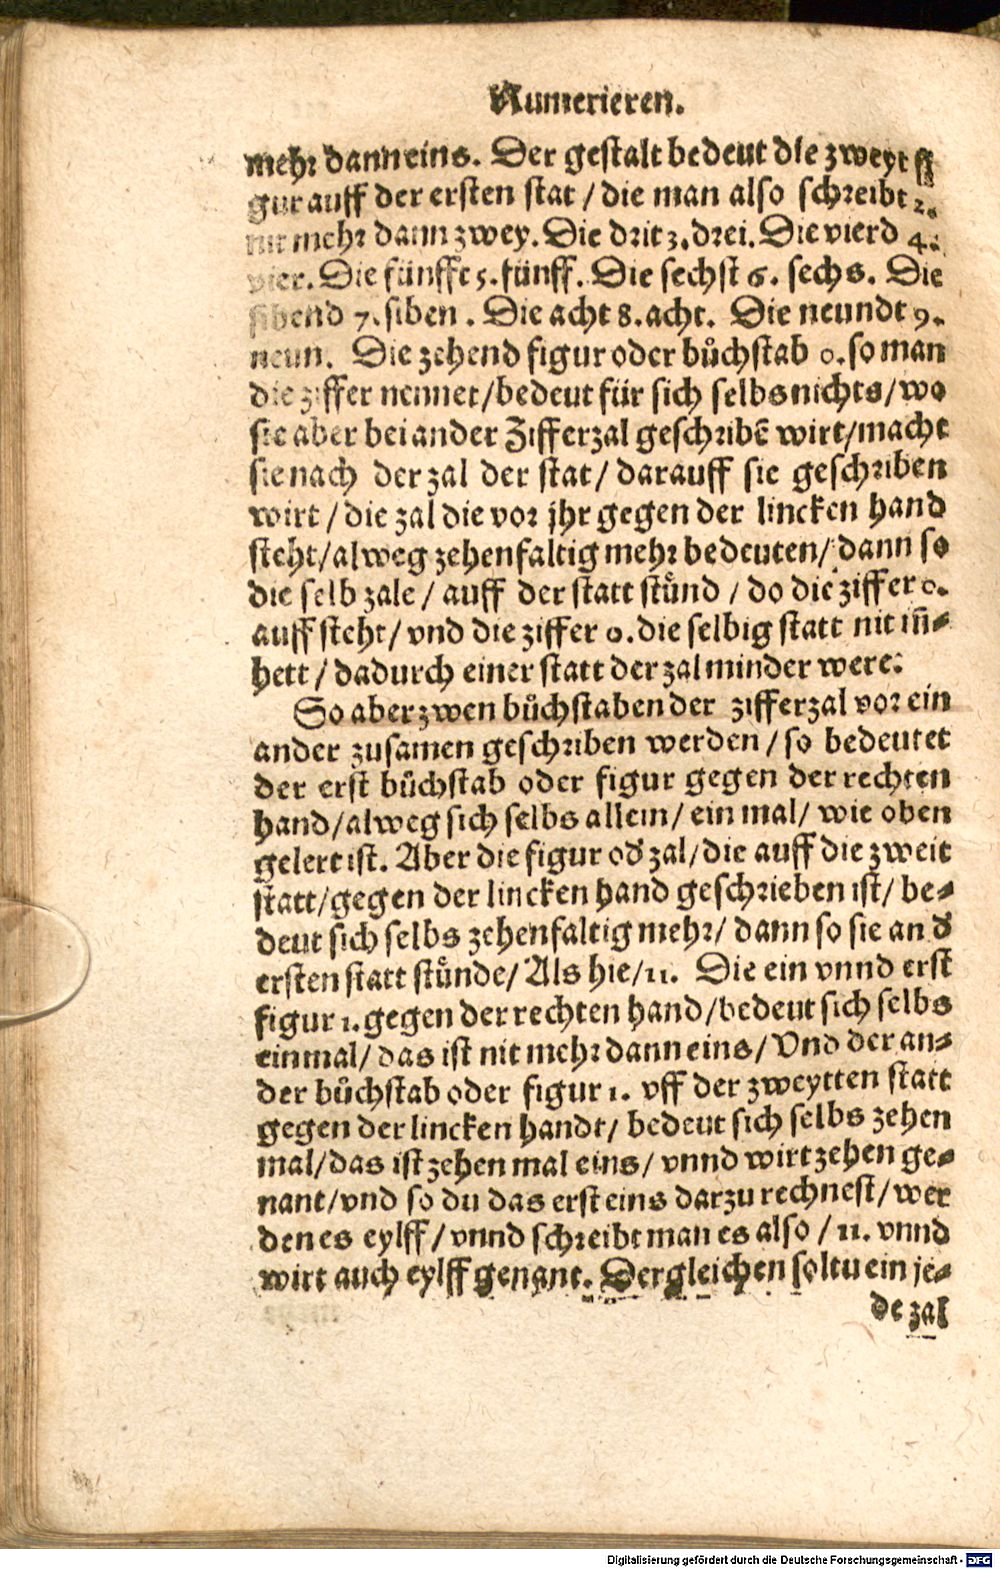 Numerieren.
mehr dann eins. Der gestalt bedeut die zweyt fi
gur auff der ersten stat / die man also schreibt 2.
nit mehr dann zwey. Die drit 3. drei. Die vierd 4.
vier. Die fünfft 5. fünff. Die sechst 6. sechs. Die
sibend 7. siben. Die acht 8. acht. Die neundt 9.
neun. Die zehend figur oder bůchstab 0. so man
die ziffer nennet/bedeut für sich selbs nichts/wo
sie aber bei ander Zifferzal geschribē wirt/macht
sie nach der zal der stat/ darauff sie geschriben
wirt / die zal die vor jhr gegen der lincken hand
steht/alweg zehenfaltig mehr bedeuten/ dann so
die selb zale / auff der statt stůnd / do die ziffer 0.
auff steht/ vnd die ziffer 0. die selbig statt nit iñ-
hett / dadurch einer statt der zal minder were.
So aber zwen bůchstaben der zifferzal vor ein
ander zusamen geschriben werden / so bedeutet
der erst bůchstab oder figur gegen der rechten
hand/alweg sich selbs allein/ ein mal/ wie oben
gelert ist. Aber die figur oď zal/die auff die zweit
statt/gegen der lincken hand geschrieben ist/ be-
deut sich selbs zehenfaltig mehr/ dann so sie an ď
ersten statt stůnde/ Als hie/11. Die ein vnnd erst
figur 1. gegen der rechten hand/bedeut sich selbs
einmal/ das ist nit mehr dann eins/ Vnd der an-
der bůchstab oder figur 1. vff der zweytten statt
gegen der lincken handt/ bedeut sich selbs zehen
mal/das ist zehen mal eins/ vnnd wirt zehen ge-
nant/vnd so du das erst eins darzu rechnest/wer
den es eylff/vnnd schreibt man es also / 11. vnnd
wirt auch eylff genant. Dergleichen soltu ein je-
de zal
Digitalisierung gefördert durch die Deutsche Forschungsgemeinschaft - DFG